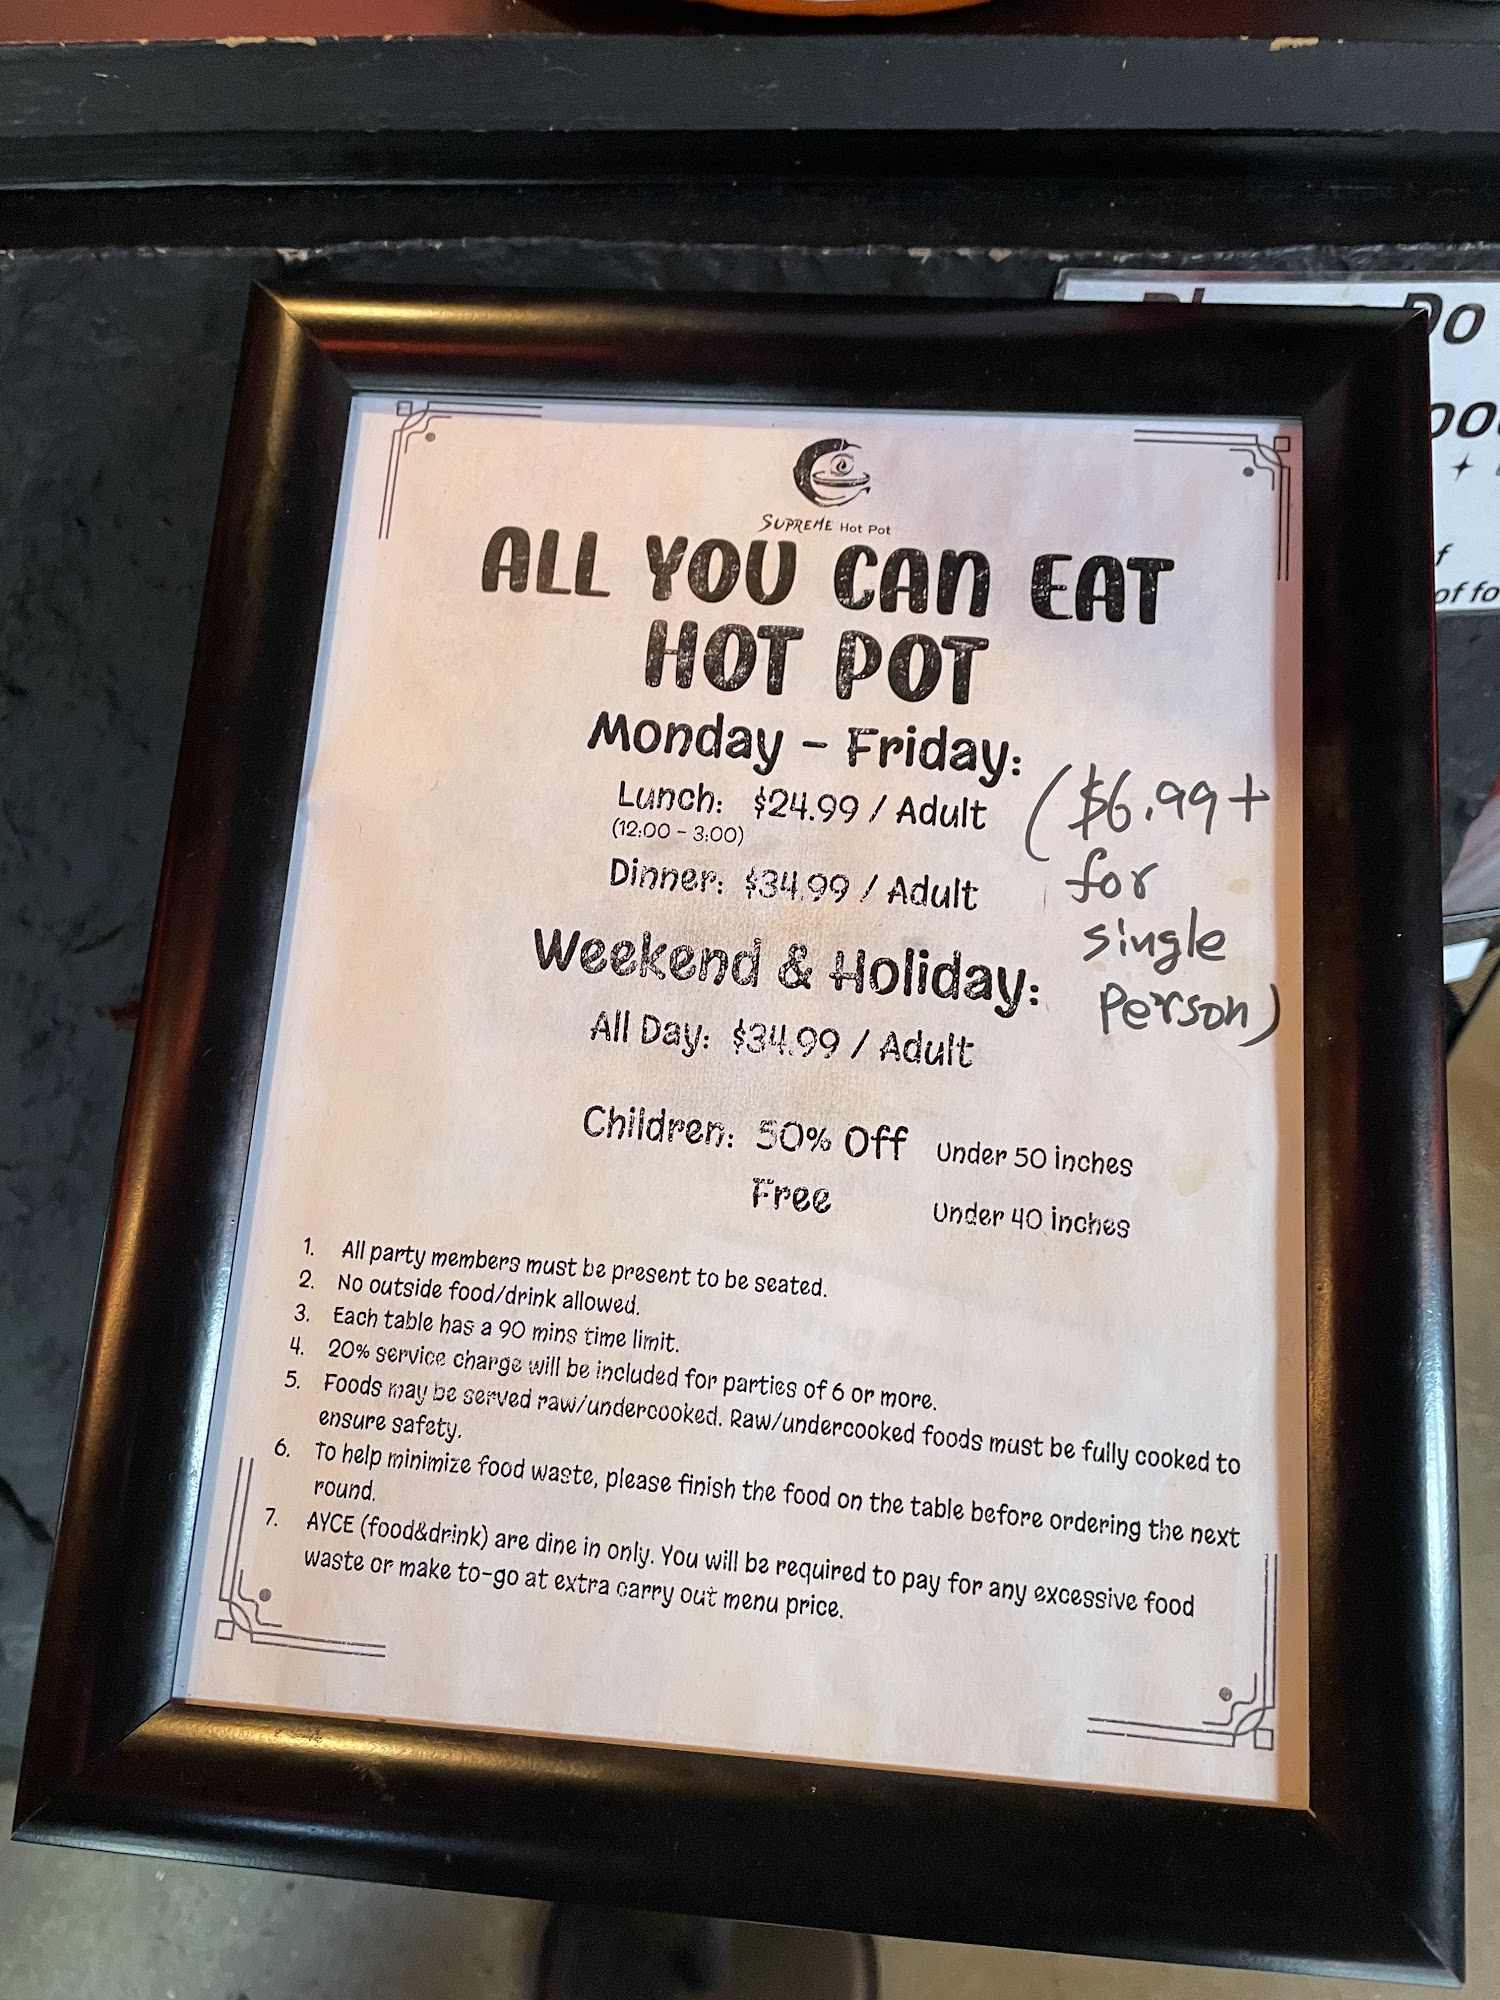 SUPREME Hot Pot
ALL YOU CAN EAT
HOT POT
Monday - Friday:
Lunch: $24.99 / Adult
(12:00 - 3:00)
Dinner: $34.99 / Adult
($6.99+
for
single
person)
Weekend & Holiday:
All Day: $34.99 / Adult
Children: 50% Off Under 50 inches
Free Under 40 inches
1. All party members must be present to be seated.
2. No outside food/drink allowed.
3. Each table has a 90 mins time limit.
4. 20% service charge will be included for parties of 6 or more.
5. Foods may be served raw/undercooked. Raw/undercooked foods must be fully cooked to
ensure safety.
6. To help minimize food waste, please finish the food on the table before ordering the next
round.
7. AYCE (food&drink) are dine in only. You will be required to pay for any excessive food
waste or make to-go at extra carry out menu price.
Do
of fo